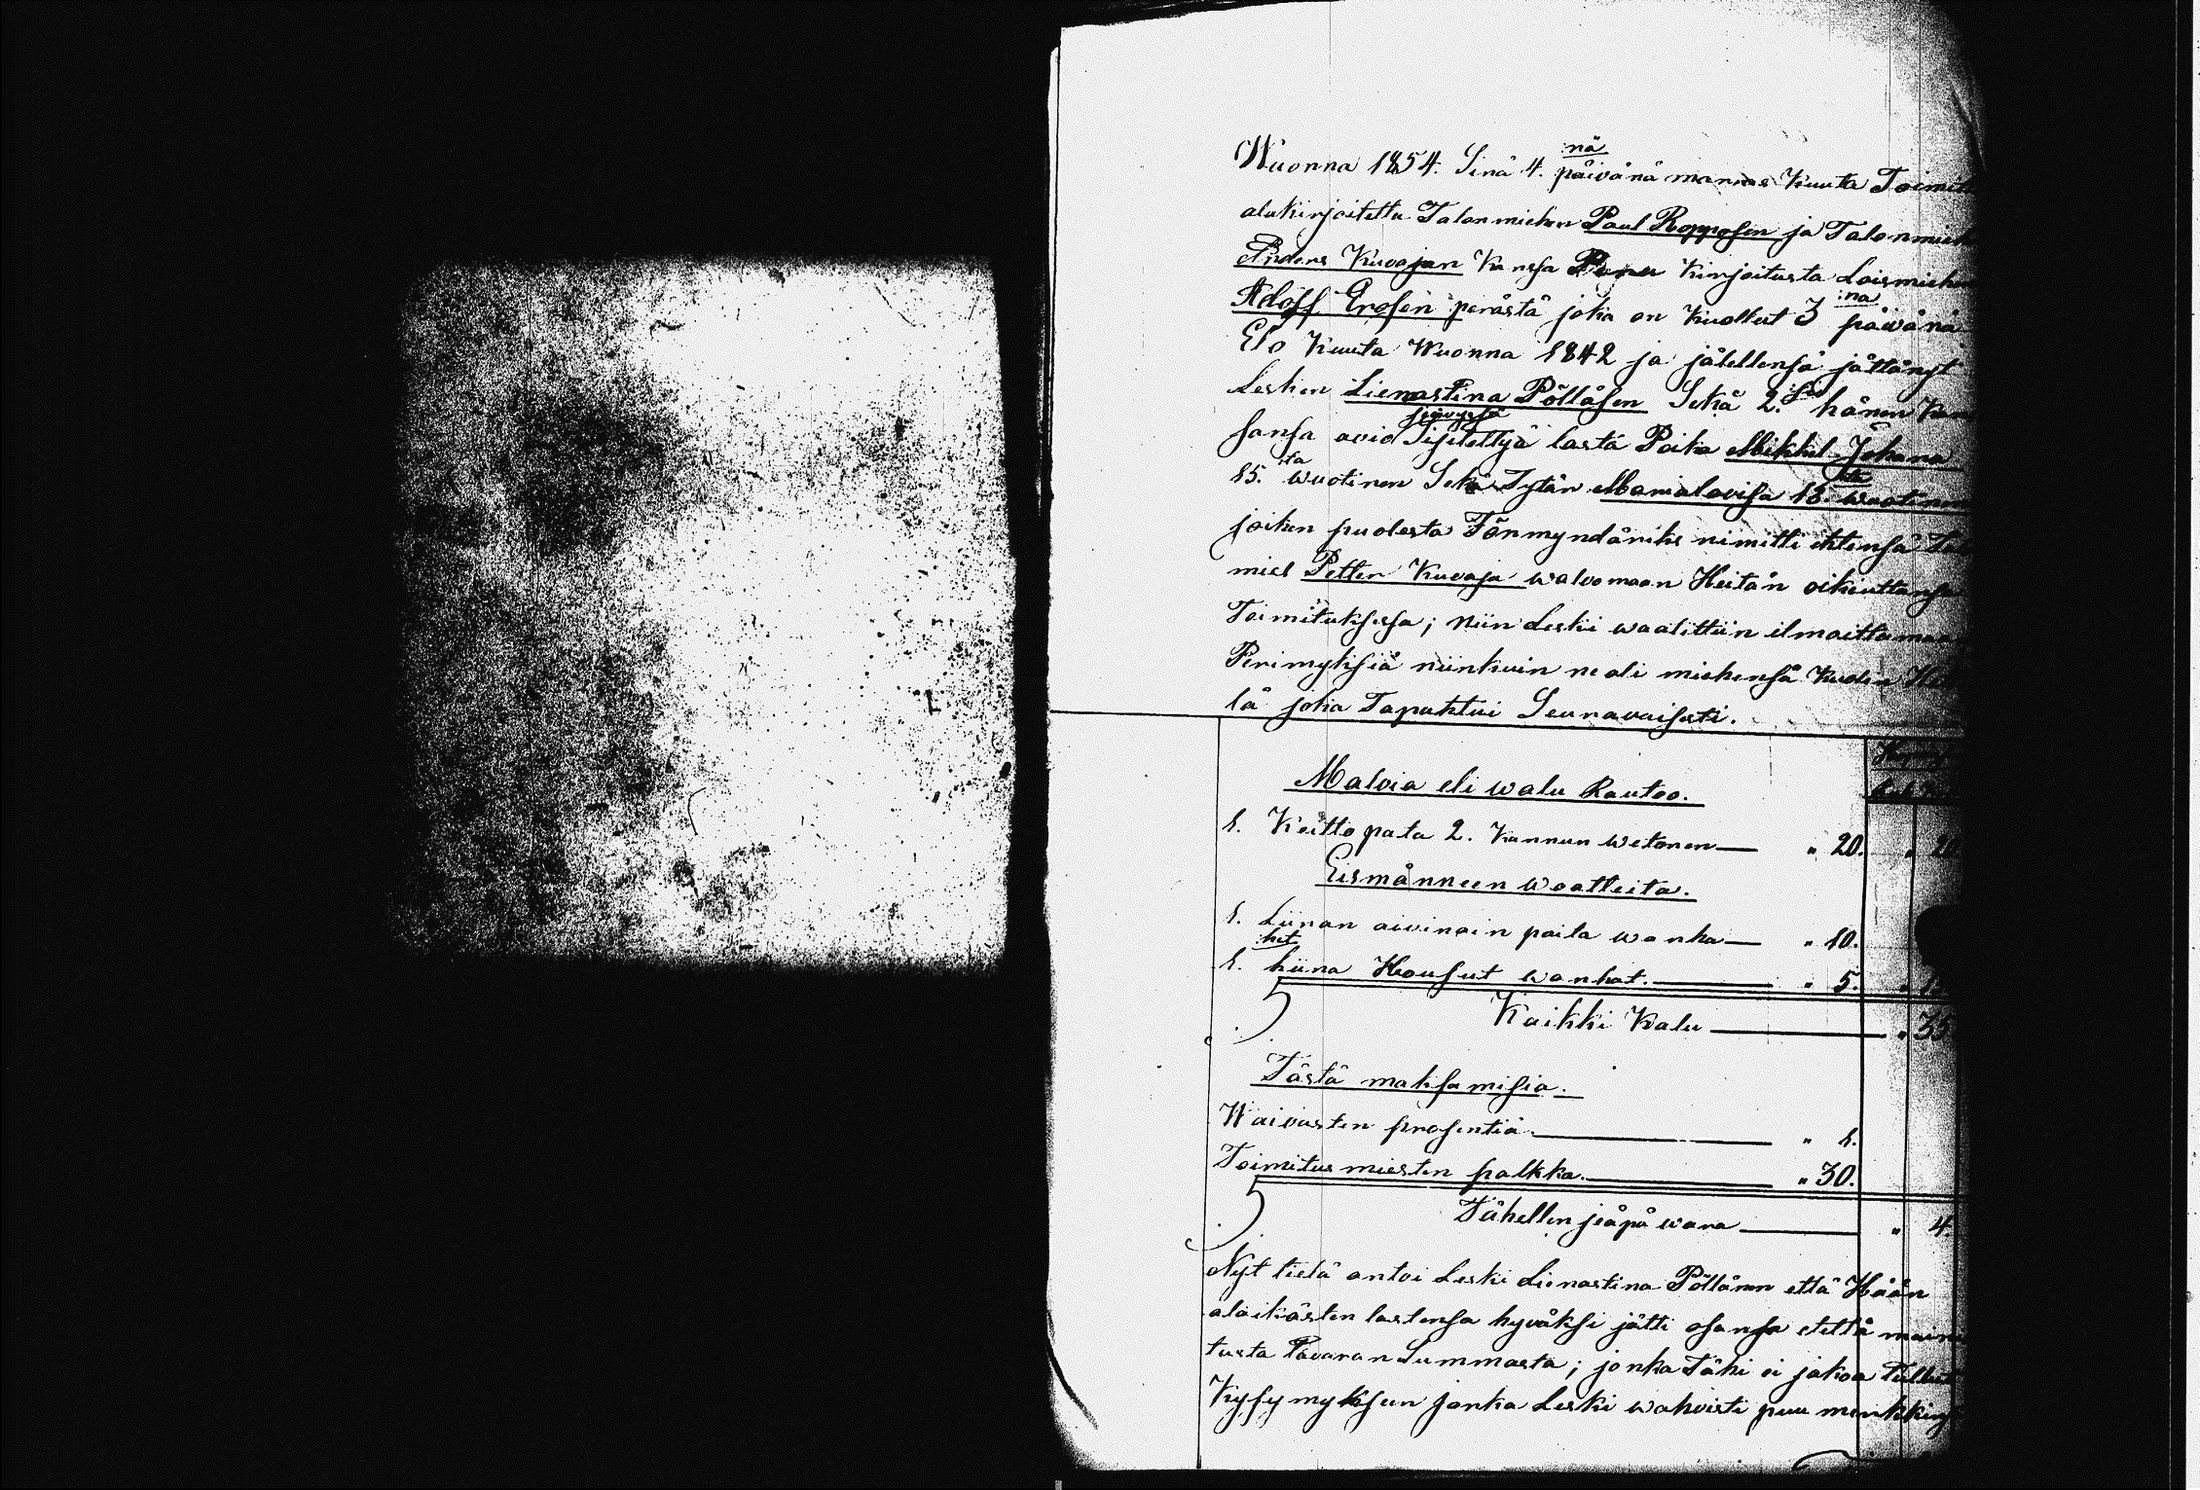 Wuonna 1854. Sinä 4. :nä päivänä marras Kuuta Toimit
alakirjoitettu Talonmiehen Paul Ropposen ja Talonmieh
Anders Kuvajan Kanssa Kirjoitusta Loismiehen
Adolf Erosen perästä joka on Kuollut 3 :na päivänä
Elo Kuuta Wuonna 1842 ja jälellensä jättänyt
Lesken Lienastina Pöllåsen Sekä 2. hänen Kan
sansa aviosijvyssä Sijtettyä lasta Poika Mikkel Johana
15. ta wuotinen Sekä Tytär Marialovisa 13. ta wuotinen
joiken puolesta Förmyndäriks nimitti ehtensä Talon
mies Petter Kuvaja walvomaan Heitän oikeuttansa
Toimituksessa; niin Leski waalittiin ilmoittamaan
Perimyksiä niinkuin ne oli miehensä Kuolin Het
lä joka Tapahtui Seuraavaisesti.
Malvia eli walu Rautoo.
1. Keitto pata 2. Kannun wetonen — " 20.
Eismänneen waatteita.
1. Liinan aivinain paita wanha — " 10.
1. het liina Housut wanhat. — " 5.
Kaikki Kalu — " 35
Tästä maksamisia.
Waivasten prosentiä — " 1.
Toimitus miesten palkka. — " 30.
Tähellen jeäpä wara — " 4.
Nyt tietä antoi Leski Lienastina Pöllänen että Hään
alaikästen lastensa hyväksi jätti osansa etellä maini
tusta tavaran Summasta; jonka Tähi ei jakoa Tullut
Kysymyksen jonka Leski wahvisti puu merkkiny